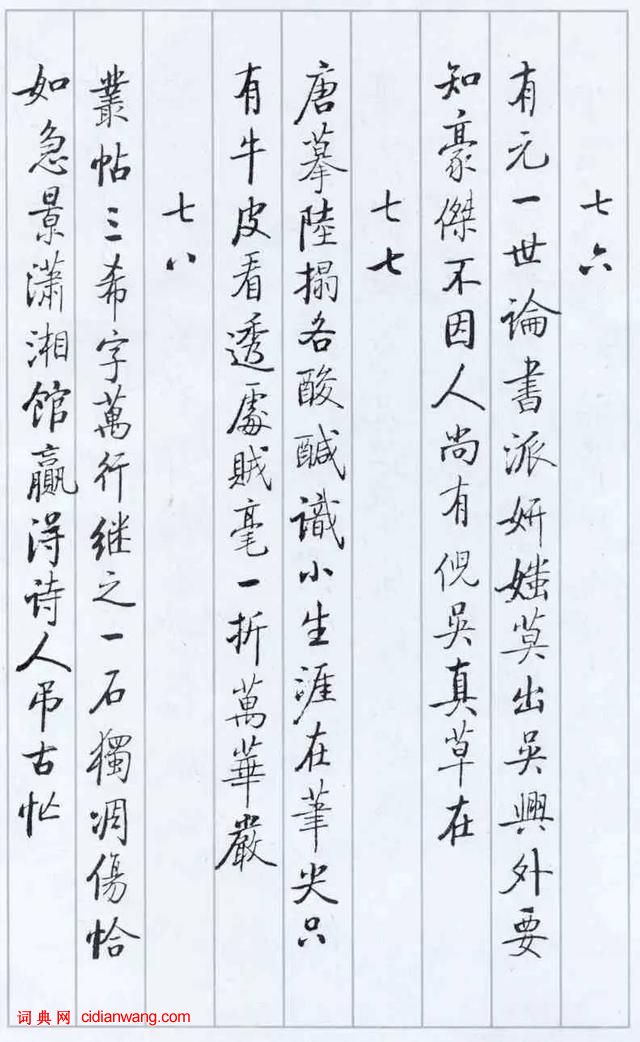 七六
有元一世論書派妍媸莫出吳興外要
知豪傑不因人尚有倪吳真草在
七七
唐摹陸搨各酸醎識小生涯在筆尖只
有牛皮看透處賊毫一折萬華嚴
七八
叢帖三希字萬行継之一石獨凋傷恰
如急景瀟湘館贏得詩人吊古忙
词典网 cidianwang.com